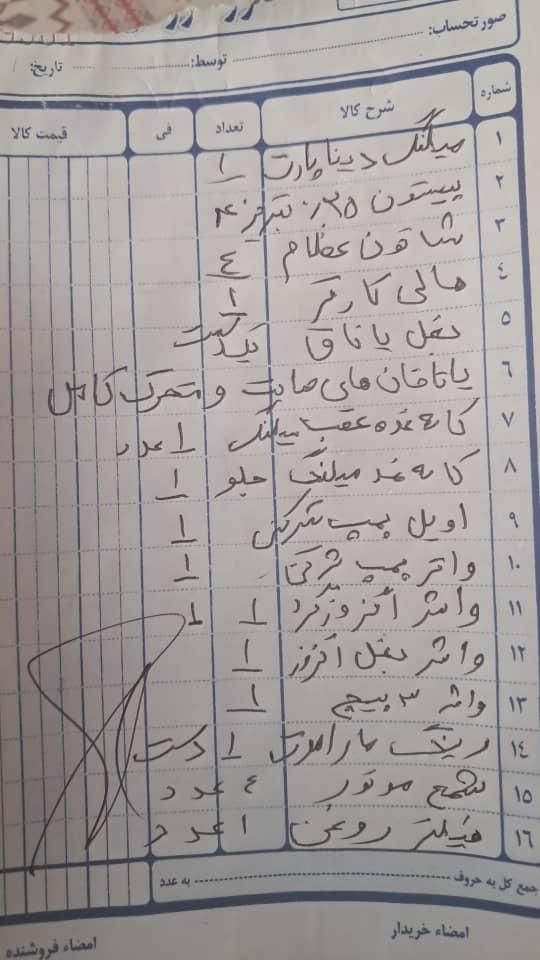 صورتحساب:
توسط: تاریخ: /
شماره شرح کالا تعداد فی قیمت کالا
۱ میلنگ دیناپارت ۱
۲ پیستون ۰/۲۵ تبریز ۴
۳ شاتون عظام ٤
٤ ۱
۵ بغل یاتاق یکدست
۶ یاتاقان های ثابت و متحرک کامل
۷ کاسه نمد عقب میلنگ ۱ عدد
۸ کاسه نمد میلنگ جلو ۱
۹ اویل پمپ شرکتی ۱
۱۰ واتر پمپ شرکتی ۱
۱۱ واشر اگزوز گرد ۱ ۱
۱۲ واشر بغل اگزوز ۱
۱۳ واشر ۳ پیچ ۱
۱٤ رینگ ۱ دست
۱۵ شمع موتور ٤ عدد
۱۶ فیلتر روغن ۱ عدد
جمع کل به حروف به عدد
امضاء خریدار امضاء فروشنده